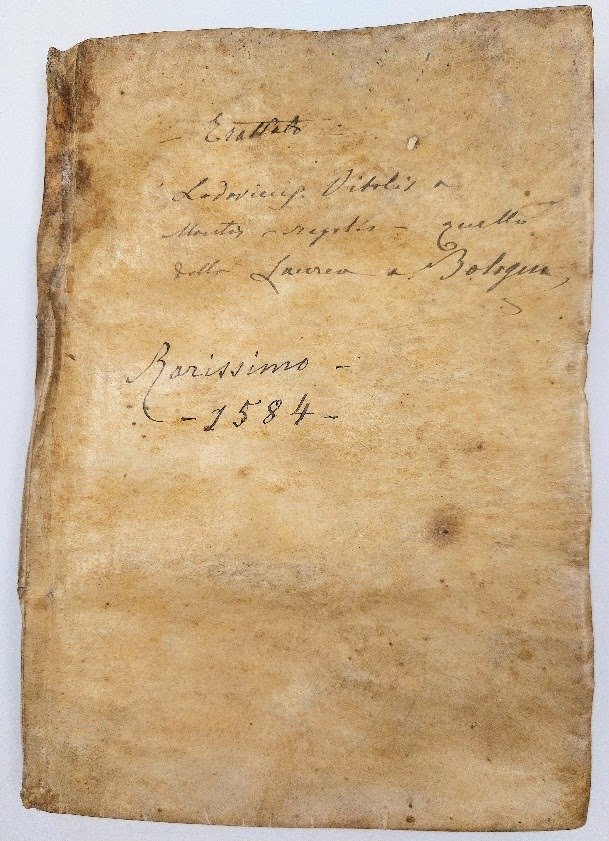 - Trattato -
Lodovicus Vitalis a
Montes - regalis - quello
della Laurea a Bologna
Rarissimo -
- 1584 -